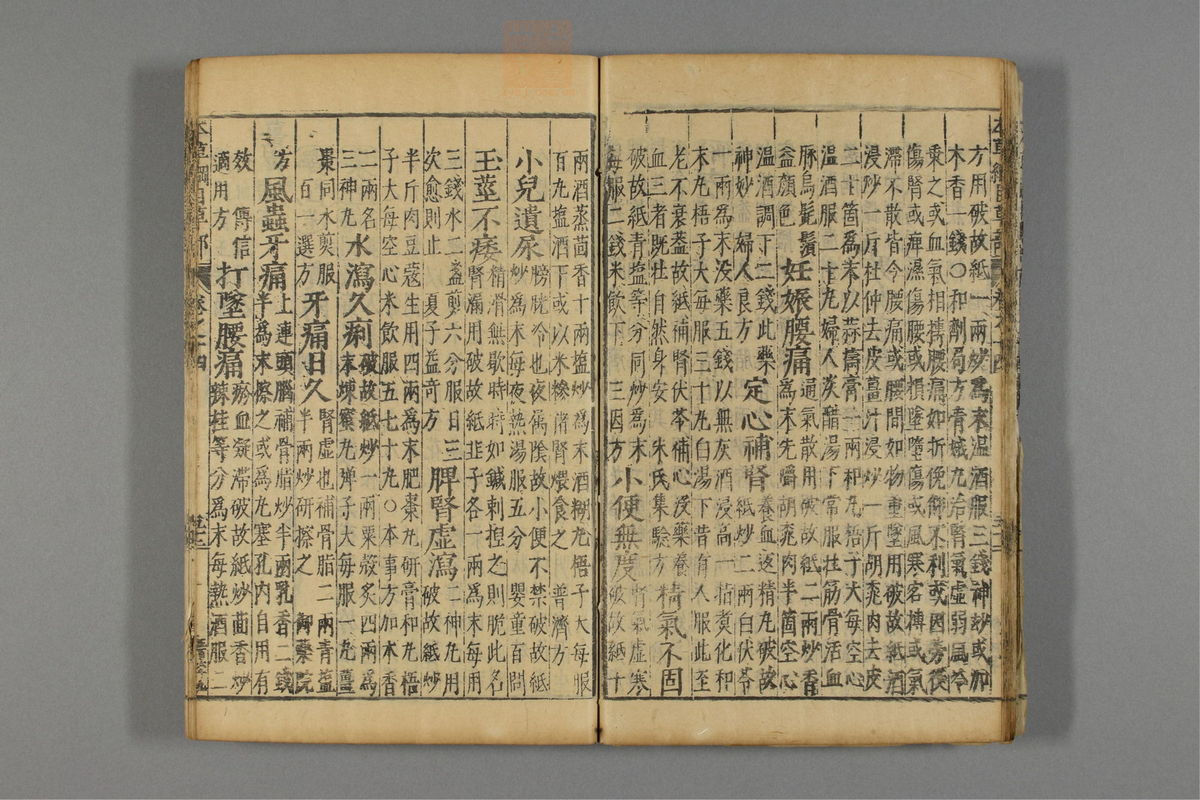 方用破故紙一兩炒爲末温酒服三錢神妙或加
木香一錢〇和劑局方青娥丸治腎氣虛弱風冷
乗之或血氣相搏腰痛如折俛仰不利或因勞役
傷腎或痺濕傷腰或損墜墮傷或風寒客搏或氣
滯不散皆令腰痛或腰間如物重墜用破故紙酒
浸炒一斤杜仲去皮薑汁浸炒一斤胡桃肉去皮
二十箇爲末以蒜擣膏一兩和丸梧子大每空心
温酒服二十丸婦人淡醋湯下常服壯筋骨活血
脉烏髭鬚
益顔色
妊娠腰痛
通氣散用破故紙二兩炒香
爲末先嚼胡桃肉半箇空心
温酒調下二錢此藥
神妙婦人良方
定心補腎
養血返精丸破故
紙炒二兩白伏苓
一兩爲末没藥五錢以無灰酒浸高一指煑化和
末丸梧子大每服三十丸白湯下昔有人服此至
老不衰葢故紙補腎伏苓補心没藥養
血三者既壯自然身安
朱氏集驗方
精氣不固
破故紙青塩等分同炒爲末
每服二錢米飲下三因方
小便無度
腎氣虛寒
破故紙十
兩酒蒸茴香十兩塩炒爲末酒糊丸梧子大每服
百丸塩酒下或以米糝猪腎煨食之
普濟方
小兒遺尿
膀胱冷也夜屬隂故小便不禁破故紙
炒爲末每夜熱湯服五分
嬰童百問
玉莖不痿
精滑無歇時時如鍼刺捏之則脆此名
腎漏用破故紙韭子各一兩爲末每用
三錢水二盞煎六分服日三
次愈則止
夏子益奇方
脾腎虛瀉
二神丸用
破故紙炒
半斤肉豆蔻生用四兩爲末肥棗丸研膏和丸梧
子大每空心米飲服五七十丸〇本事方加木香
二兩名
三神丸
水瀉久痢
破故紙炒一兩粟殻炙四兩爲
末煉蜜丸彈子大每服一丸薑
棗同水煎服
百一選方
牙痛日久
腎虛也補骨脂二兩青塩
半兩炒研擦之
御藥院
方
風蟲牙痛
上連頭腦補骨脂炒半兩乳香二錢
半爲末擦之或爲丸塞孔内自用有
效
傳信
適用方
打墜腰痛
瘀血凝滯破故紙炒茴香炒
辣桂等分爲末每熱酒服二